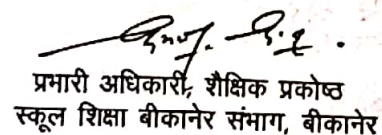 प्रभारी अधिकारी, शैक्षिक प्रकोष्ठ
स्कूल शिक्षा बीकानेर संभाग, बीकानेर